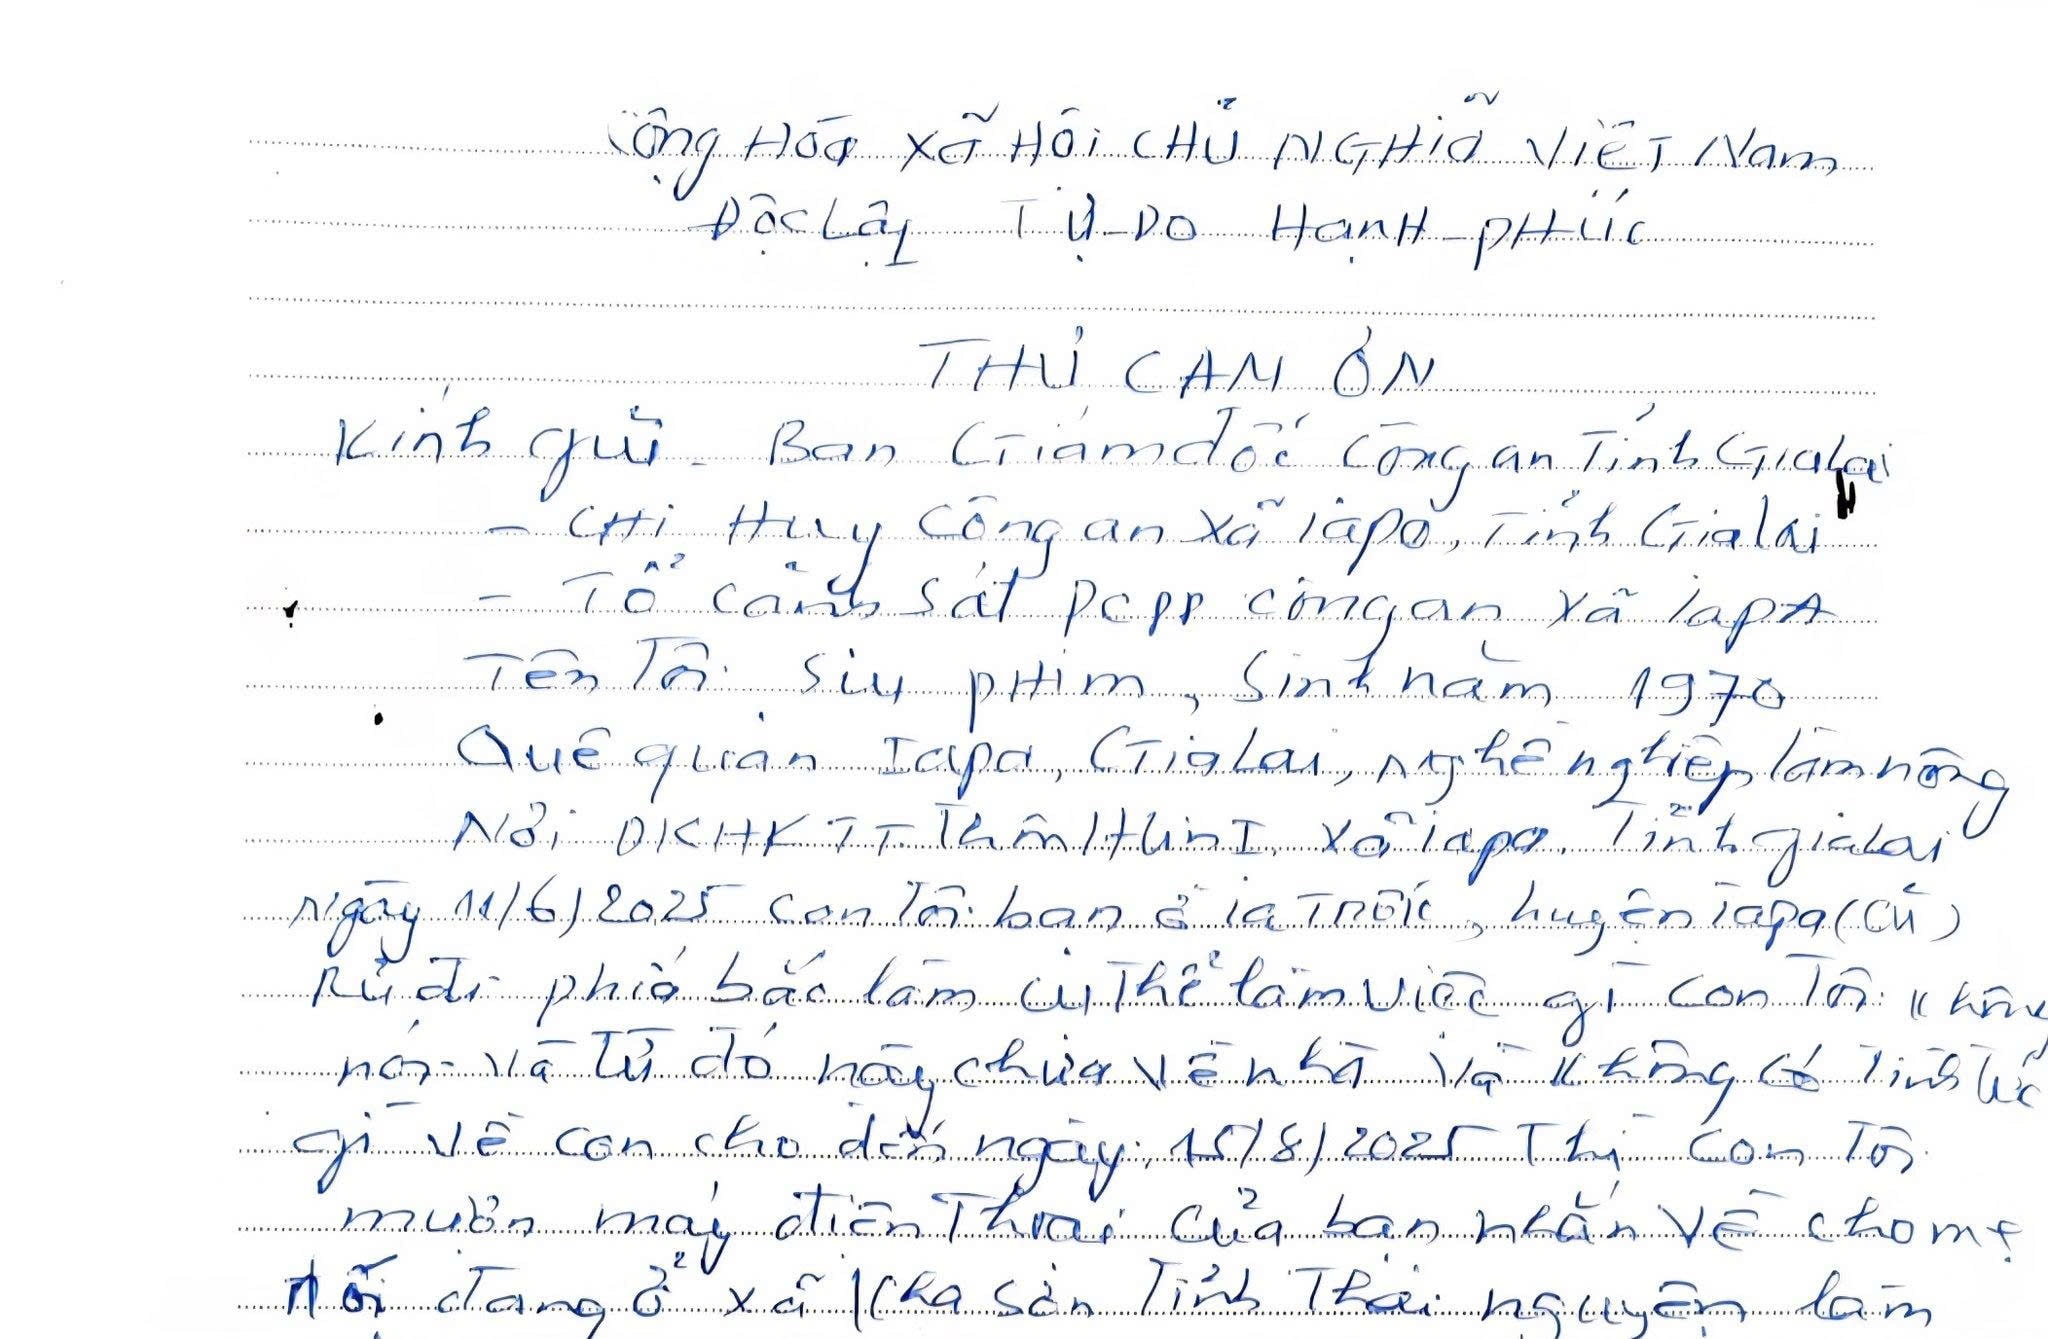 Cộng Hòa xã Hôi CHỦ NGHIÃ VIỆT Nam
Độc Lập Tự-Do Hạnh-pHúc
THƯ CAM ƠN
Kính gửi - Ban Giám đốc Công an Tỉnh Gialai
- CHỉ Huy Công an xã iapa, Tỉnh Gialai
- Tổ cảnh sát pcpp công an xã iapA
Tên Tôi Siu pHim, Sinh năm 1970
Quê quán Iapa, GiaLai, nghề nghiệp làm nông
Nơi ĐKHKTT. Thôn HLin I, xã iapa. Tỉnh gialai
ngày 11/6/2025 con Tôi bạn ở ia Trốk, huyện iapa (Cũ)
Rủ đi phiá bắc làm cụ Thể làm việc gì con Tôi không
nói - và Từ đó nay chưa về nhà và không có Tinh Tức
gì về con cho đến ngày: 15/8/2025 Thì con Tôi
mượn máy điện Thoai của bạn nhắn về cho mẹ
nói đang ở xã Kha sơn Tỉnh Thái nguyên làm